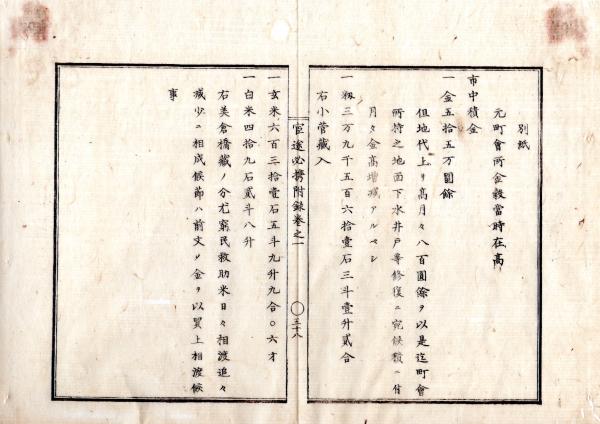 別紙
元町會所金穀當時在高
市中積金
一金五拾五万圓餘
但地代上リ高月々八百圓餘ヲ以是迄町會
所持之地面下水井戸等修復ニ宛候積ニ付
月々金高増减アルヘシ
一籾三万九千五百六拾壹石三斗壹升貳合
右小菅藏入
官途必携附録巻之一
三十八
一玄米六百三拾壹石五斗九升九合〇六才
一白米四拾九石貳斗八升
右美倉橋藏ノ分尤窮民救助米日々相渡追々
减少ニ相成候節ハ前文ノ金ヲ以買上相渡候
事